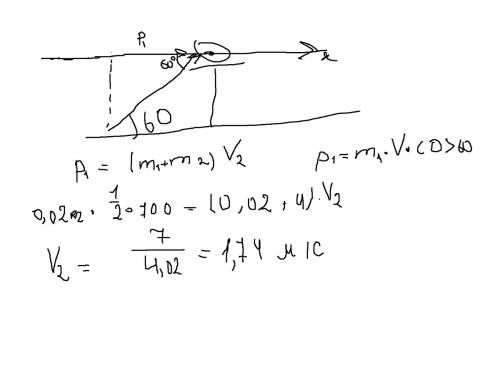 P₁
60°
x
60
P₁ = (m₁+m₂) V₂
p₁=m₁·V·cos60
0,02 · 1/2 · 700 = (0,02+4)·V₂
V₂ = 7/4,02 = 1,74 м/с